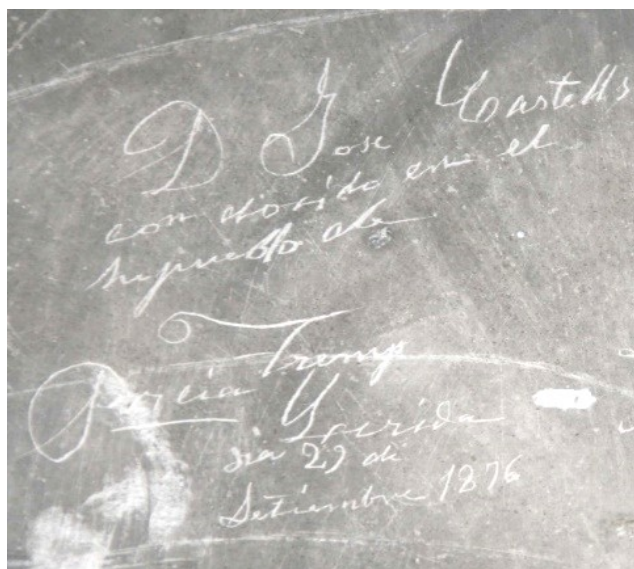 D Jose Castells
conosido en el
supuesto de
Tremp
Lerida
dia 29 de
Setiembre 1876